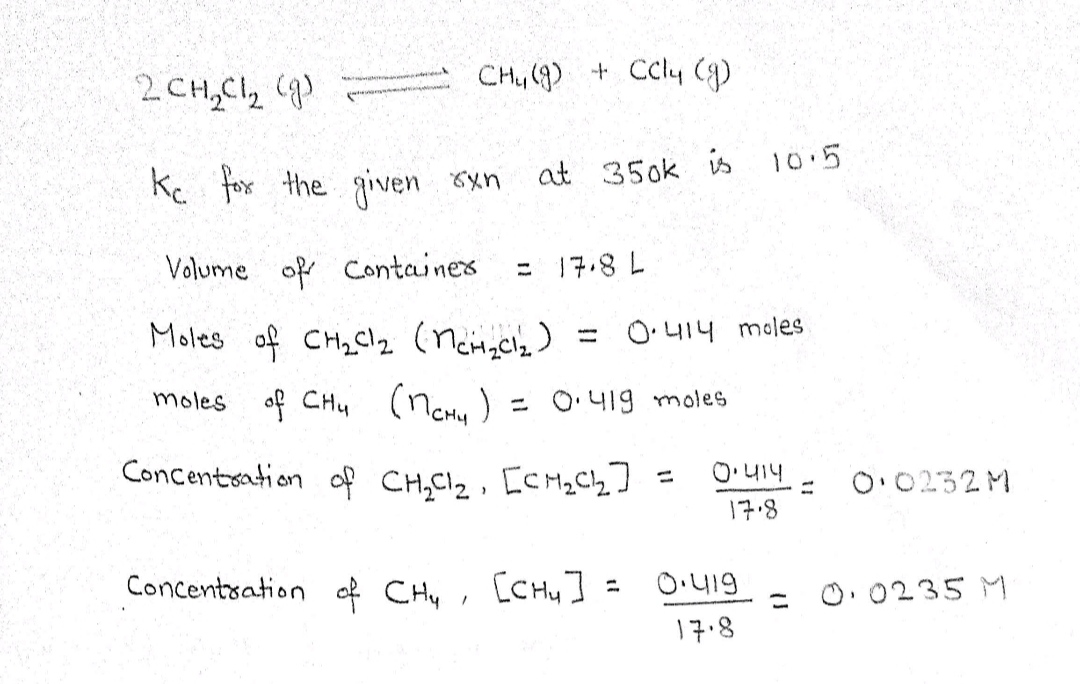 2 CH₂Cl₂ (g) ⇌ CH₄(g) + CCl₄ (g)
Kc for the given rxn at 350k is 10.5
Volume of Container = 17.8 L
Moles of CH₂Cl₂ (nCH₂Cl₂) = 0.414 moles
moles of CH₄ (nCH₄) = 0.419 moles
Concentration of CH₂Cl₂, [CH₂Cl₂] = 0.414/17.8 = 0.0232 M
Concentration of CH₄, [CH₄] = 0.419/17.8 = 0.0235 M